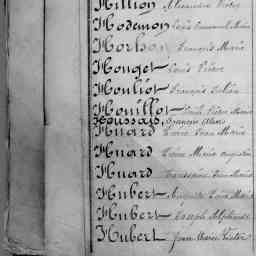 Hillion Alexandre Pierre
Hodemon Louis Emmanuel
Horhon François Marie
Houget Louis Pierre
Houliot François Julien
Houillot Emile Pierre Marie
Houssais, François Alexis
Huard Pierre Jean Marie
Huard Pierre Marie Augustin
Huard Toussaint Jean Marie
Hubert Auguste Jean Marie
Hubert Joseph Alphonse
Hubert Jean Marie Victor